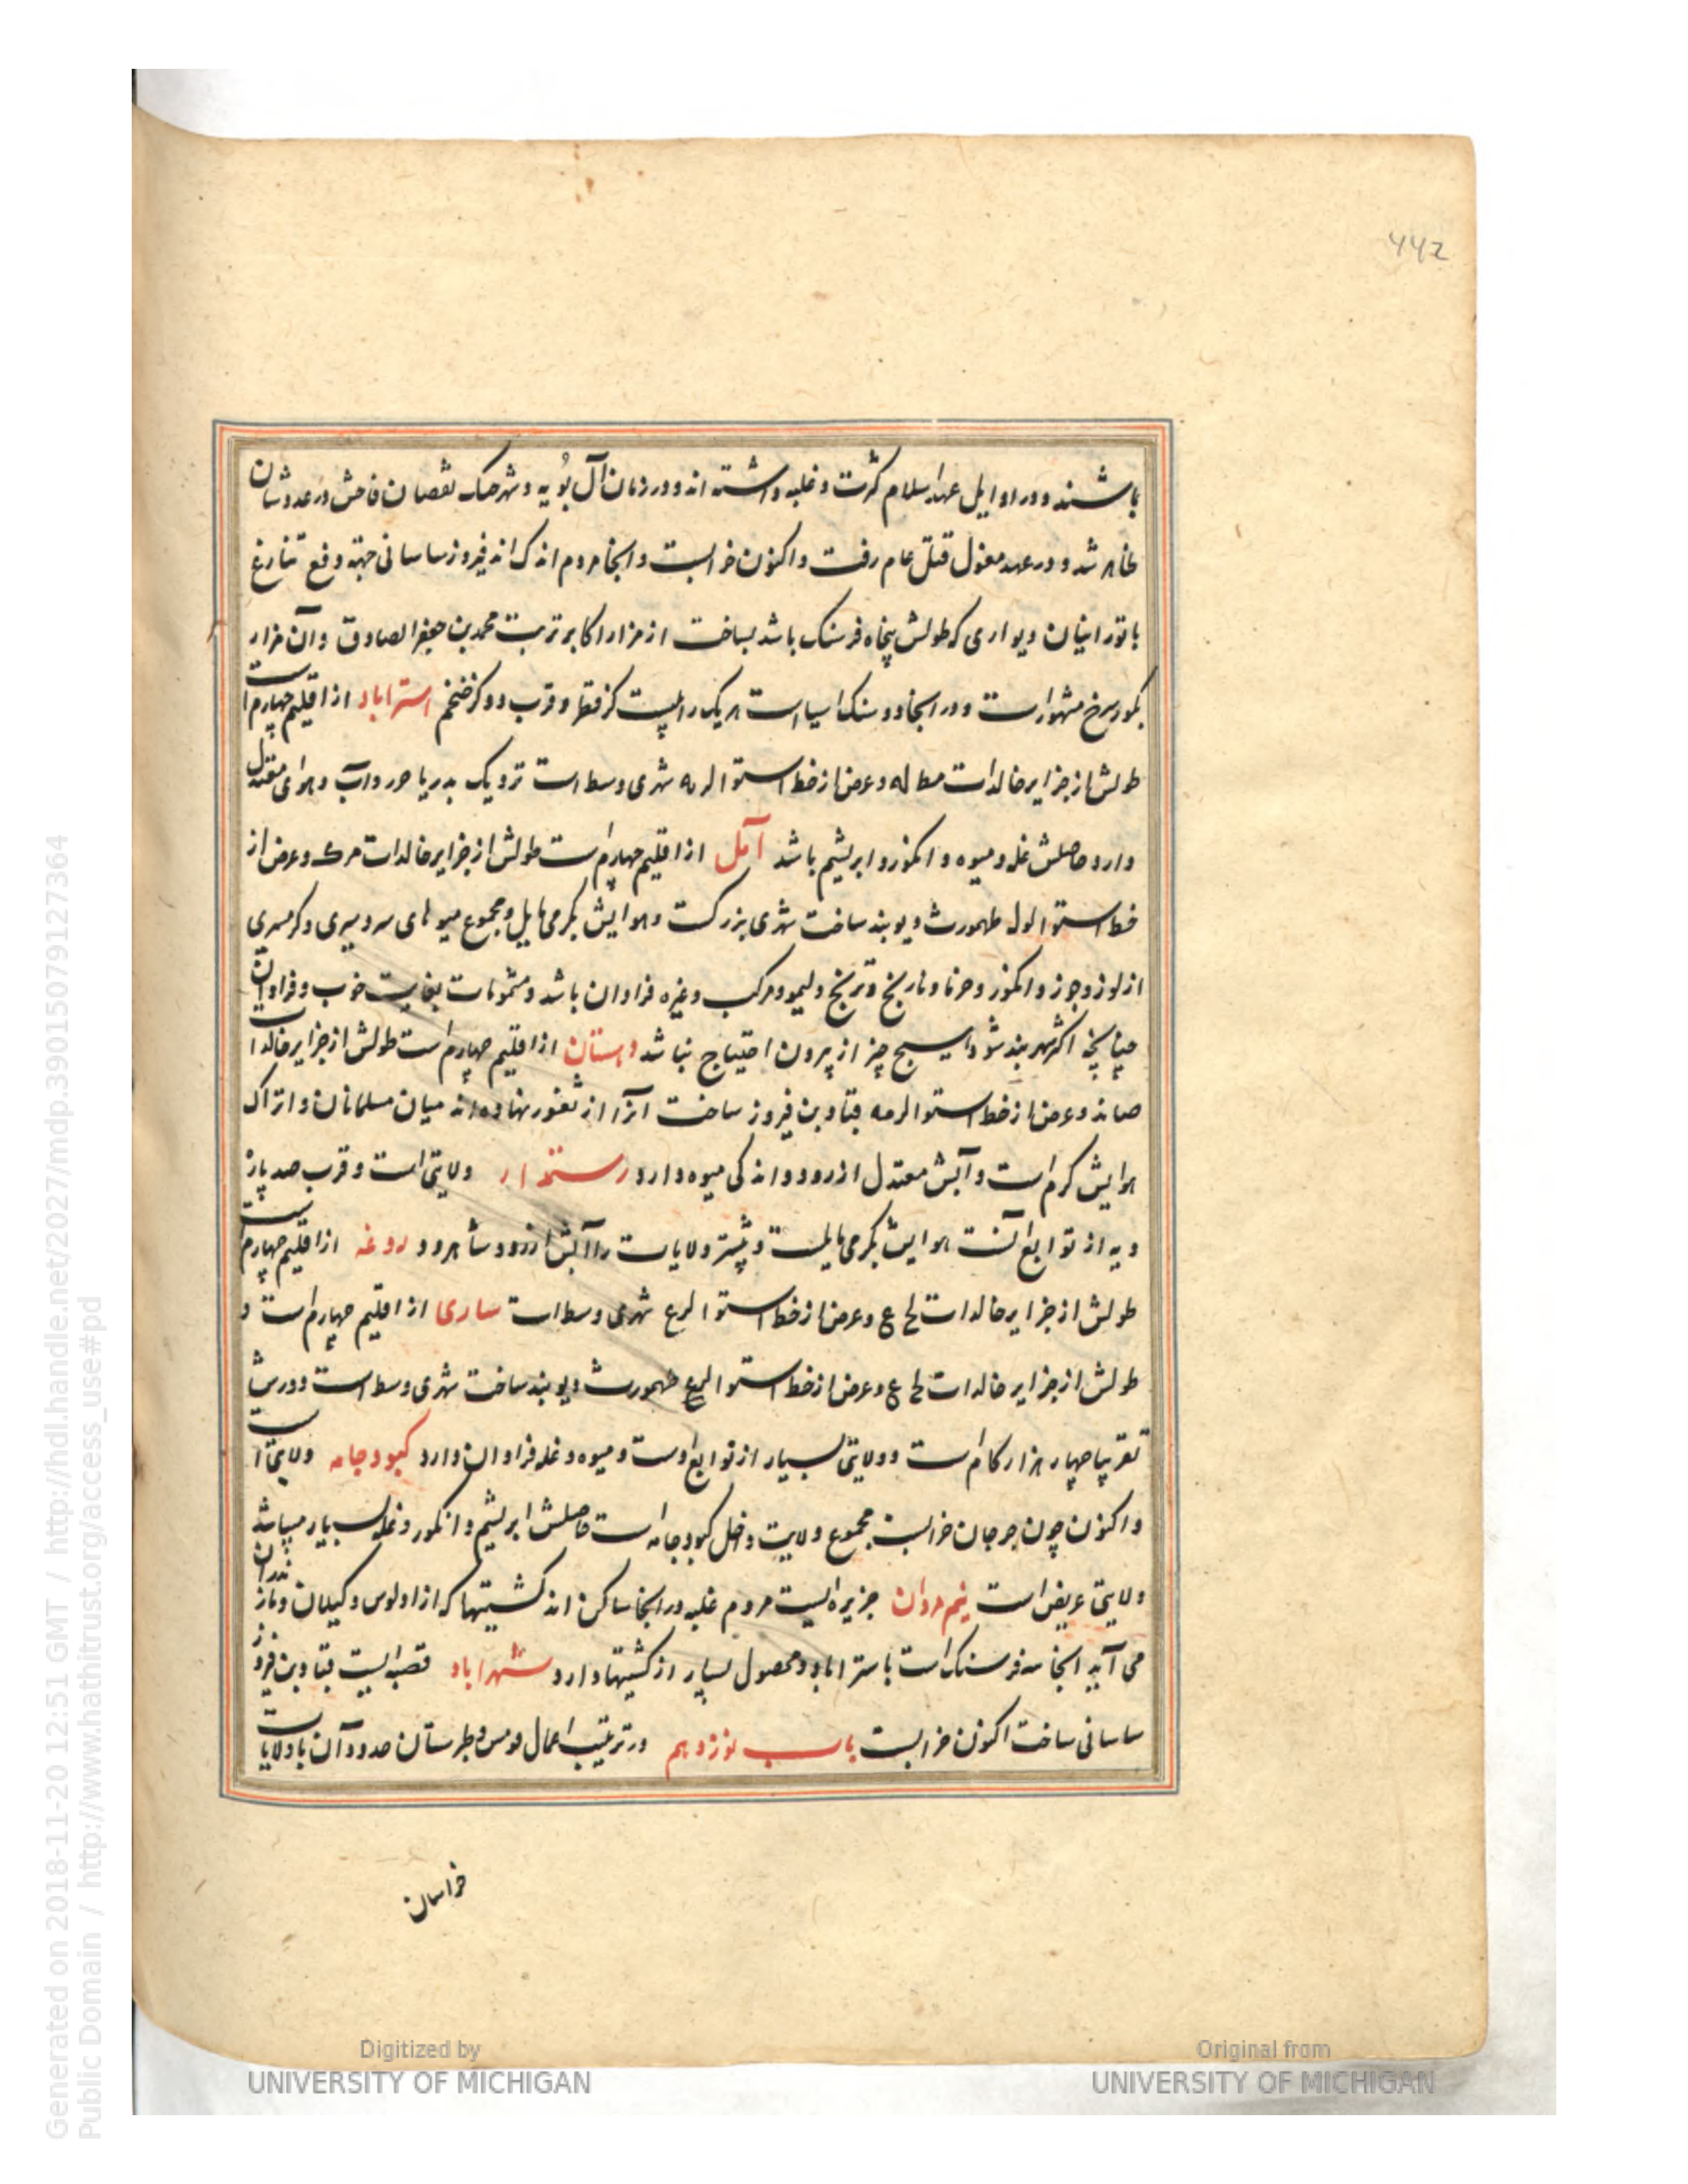 442
باشند و در اوایل عهد اسلام کثرت و غلبه داشته اند و در زمان آل بُویه و شهر جنک نقصان فاحش در عددشان
ظاهر شد و در عهد مغول قتل عام رفت و اکنون خرابست و انجا مردم اندک اند فیروز ساسانی جهته دفع تنازع
با تورانیان دیواری که طولش پنجاه فرسنک باشد بساخت از مزار اکابر تربت محمد بن جعفر الصادق و آن مزار
بکور سرخ مشهور است و در انجا دو سنک اسیا است هر یک را بیست کز قطر و قرب دو کز ضخم استراباد از اقلیم چهارم است
طولش از جزایر خالدات مطاله و عرض از خط استوا لره شهری وسط است نزدیک بدریا خورد و آب و هوای معتدل
دارد حاصلش غله و میوه و انکور و ابریشم باشد آمل از اقلیم چهارم است طولش از جزایر خالدات مرک و عرض از
خط استوا لول طهمورث دیوبند ساخت شهری بزرکست و هوایش بکرمی مایل و مجموع میوهای سردسیری و کرمسیری
از لوز و جوز و انکور و خرما و نارنج و ترنج و لیمو و مرکب و غیره فراوان باشد و مشمومات بغایت خوب و فراوان
چنانچه اکر شهر بند شود هیچ چیز از بیرون احتیاج نباشد دهستان از اقلیم چهارم است طولش از جزایر خالدات
صاند و عرض از خط استوا لرمه قباد بن فیروز ساخت آنرا از ثغور نهاده اند میان مسلمانان و اتراک
هوایش کرم است و آبش معتدل از رود و اندکی میوه دارد رستمدار ولایتی است و قرب صد پاره
دیه از توابع آنست هوایش بکرمی مایلست و بیشتر ولایات را آبش از رود شاهرود روغد از اقلیم چهارم است
طولش از جزایر خالدات لح ع و عرض از خط استوا لرع شهری وسط است ساری از اقلیم چهارم است و
طولش از جزایر خالدات لح ع و عرض از خط استوا لرع طهمورث دیوبند ساخت شهری وسط است دورش
تقریبا چهار هزار کام است و ولایتی بسیار از توابع اوست و میوه و غله فراوان دارد کبودجامه ولایتی است
و اکنون چون جرجان خرابست مجموع ولایت داخل کبودجامه است حاصلش ابریشم و انکور و غله بسیار میباشد
ولایتی عریض است نیم مردان جزیره ایست مردم غلبه در انجا ساکن اند کشتیها که از اولوس و کیلان و مازندران
می آید انجا سه فرسنک است با ستراباد و محصول بسیار از کشتیها دارد شهراباد قصبه ایست قباد بن فیروز
ساسانی ساخت اکنون خرابست باب نوزدهم در ترتیب اعمال قومس و طبرستان حدود آن با ولایات
خراسان